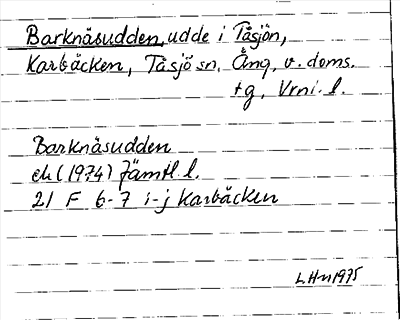 Barknäsudden, udde i Tåsjön,
Karbäcken, Tåsjö sn. Ång. v. doms.
tg, Vrni. l.
Barknäsudden
ek (1974) Jämtl. l.
21 F 6-7 i-j Karbäcken
LHn 1975